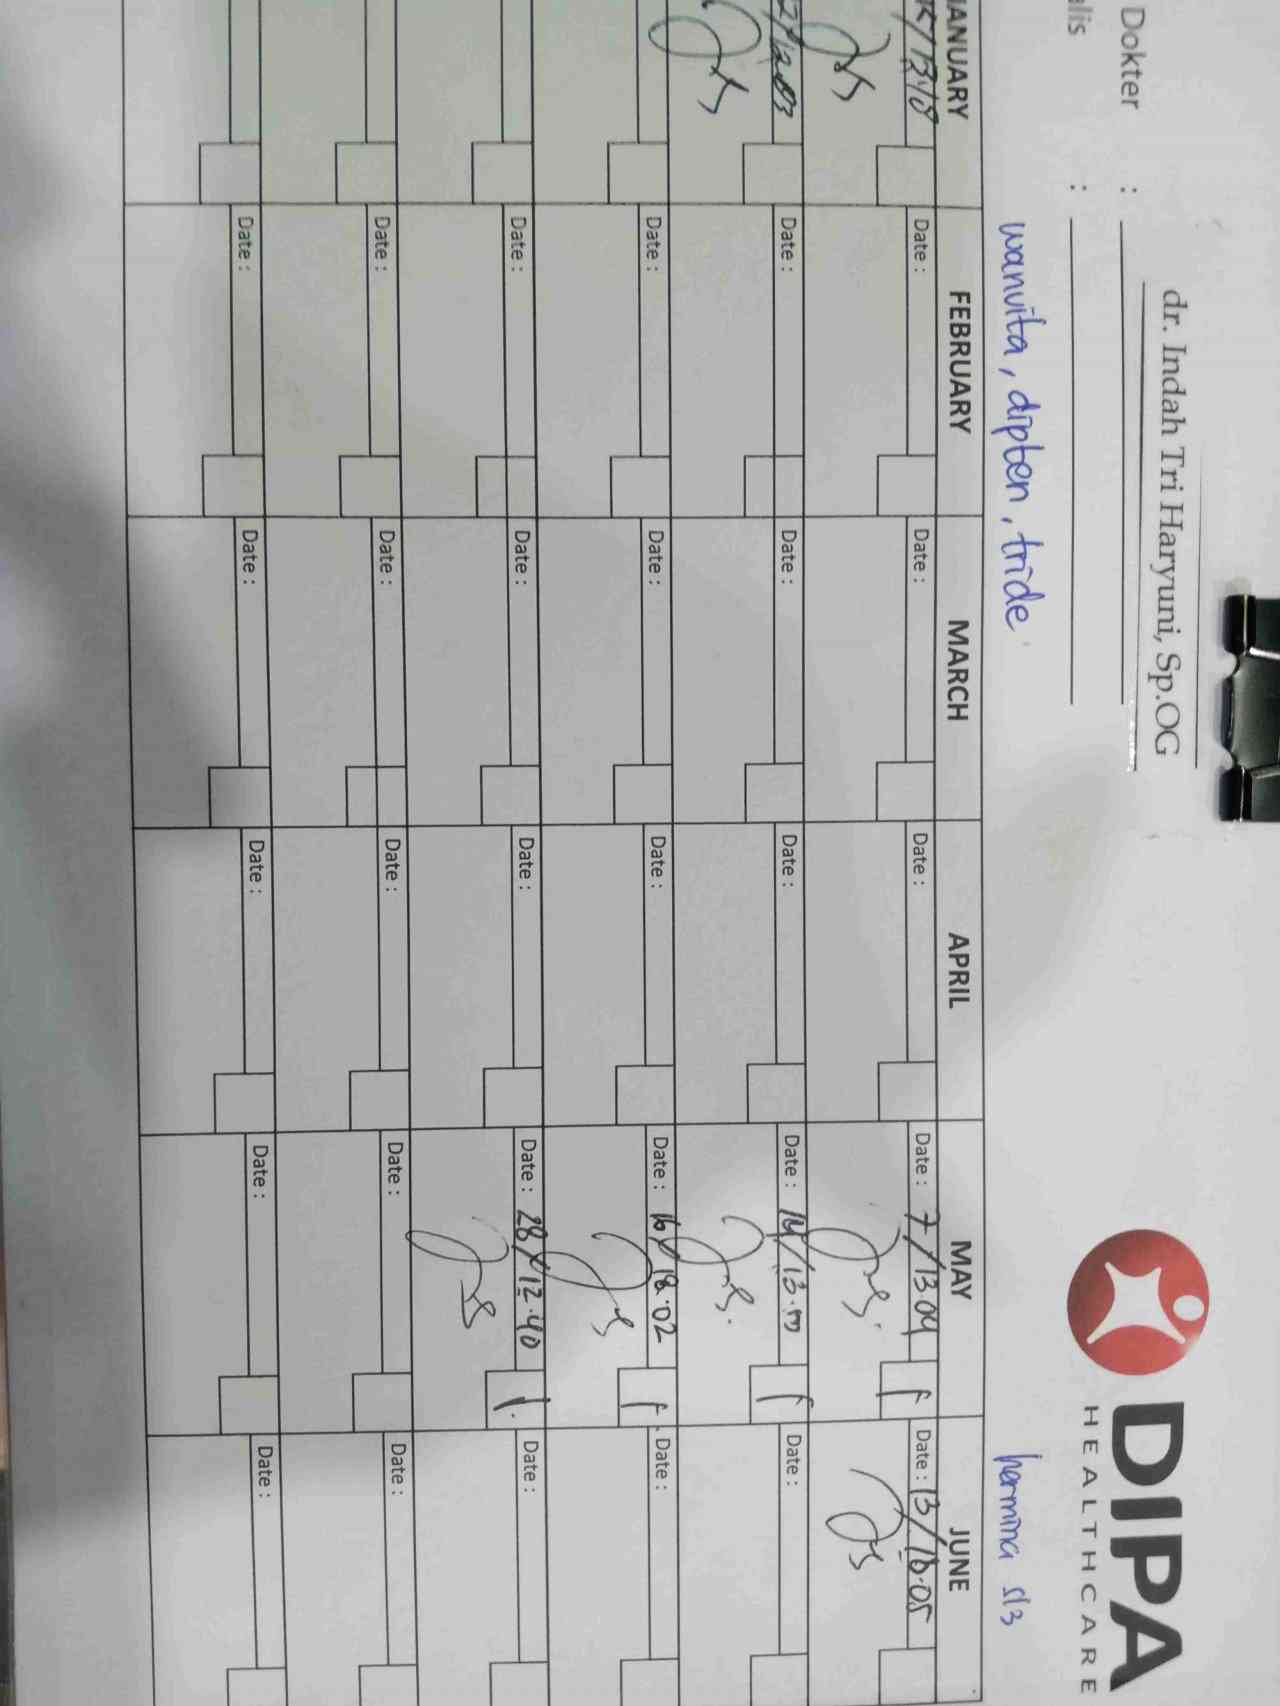 DIPA
HEALTHCARE
Dokter :
dr. Indah Tri Haryuni, Sp.OG
alis :
wanvita, dipten, tride
hermina s/3
JANUARY FEBRUARY MARCH APRIL MAY JUNE
13.18 Date : Date : Date : Date : 7/13.04 Date : 13/16.05
12.03 Date : Date : Date : Date : 14/13. Date :
Date : Date : Date : Date : 16/18.02 Date :
Date : Date : Date : Date : 28/12.40 Date :
Date : Date : Date : Date : Date :
Date : Date : Date : Date : Date :